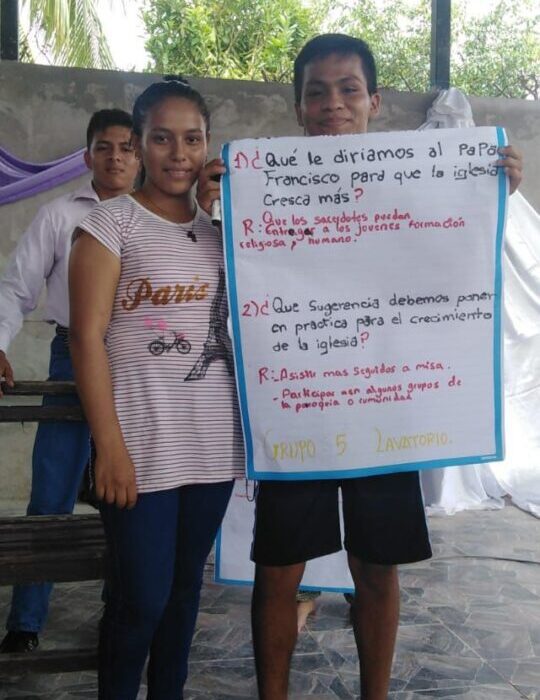 1) ¿Qué le diríamos al PaPa
Francisco para que la iglesia
Cresca más?
R: Que los sacerdotes puedan
Entregar a los jovenes formación
religiosa y humano.
2) ¿Que Sugerencia debemos poner
en practica para el crecimiento
de la iglesia?
R:- Asistir mas seguidos a misa.
- Participar en algunos grupos de
la paroquia o comunidad
GRUPO 5 LAVATORIO.
Paris